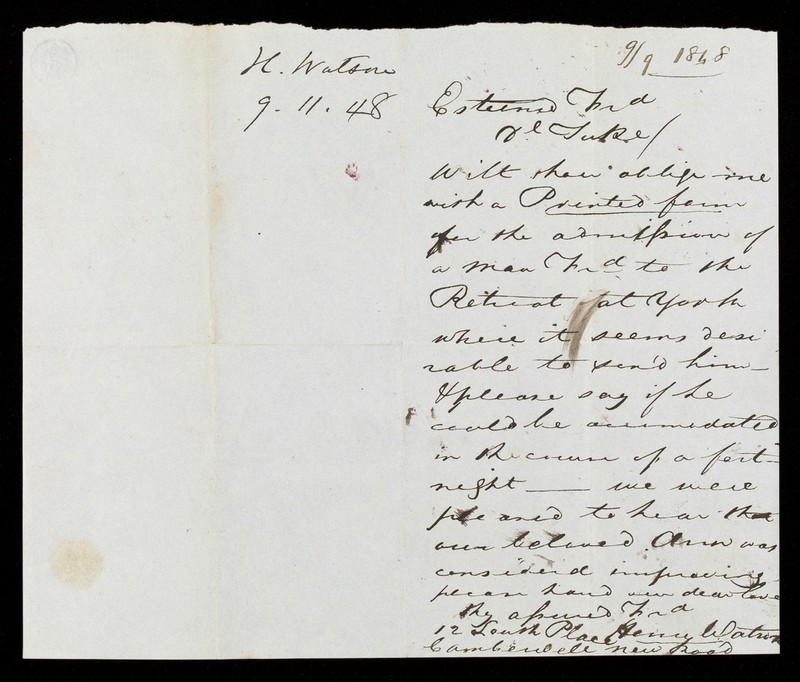 H. Watson
9. 11. 48
9/9 1848
Esteemed Frd
Dl Tuke/
Wilt thou oblige me
with a Printed form
for the admission of
a man Frd to the
Retreat at York
where it seems desi
rable to send him –
& please say if he
could be accomodated
in the course of a fort-
night — we were
pleased to hear that
our beloved Ann was
considered improving
please hand our dear love
thy assured Frd
Henry Watson
12 South Place
Camberwell new Road